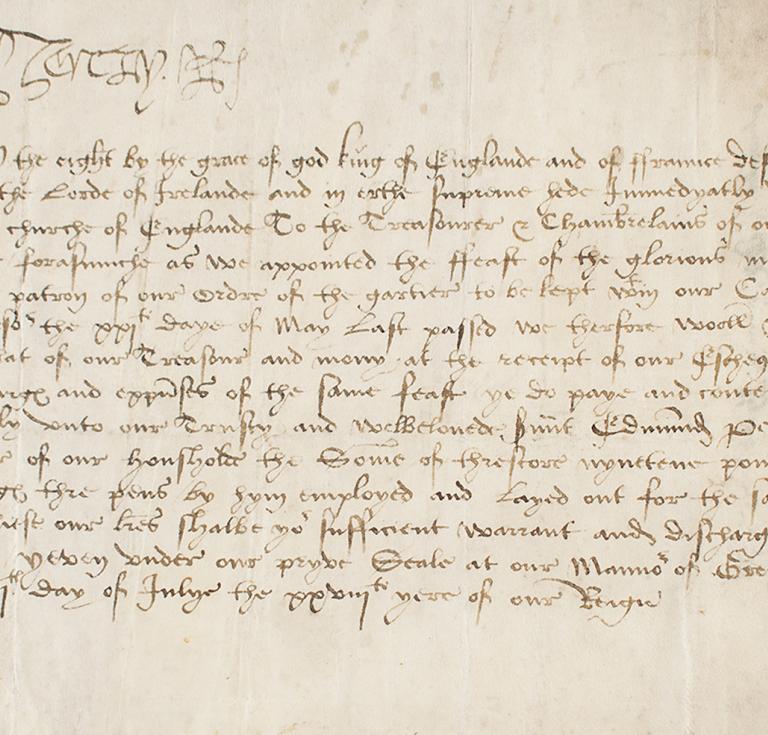 Henry R
the eight by the grace of god king of Englande and of ffraunce def
the Lorde of Irelande and in erthe supreme hede Immedyatly
churche of Englande To the Treasourer & Chambrelains of o
forasmuche as we appointed the ffeast of the glorious m
patron of our Ordre of the gartier to be kept wtin our Ca
the xxjth daye of May Last passed we therfore wooll
at of our Treasour and mony at the receipt of our Escheq
and expnses of the same feast ye do paye and conte
ly vnto our Trusty and welbeloued sruunt Edmund Pe
of our houshold the Some of threscore nynetene pou
thre pens by hym employed and Layed out for the sa
iese our lres shalbe yor sufficient warrant and discharg
yeven vnder our pryve Seale at our Mannor of Gre
day of Julye the xxviijth yere of our Reigne